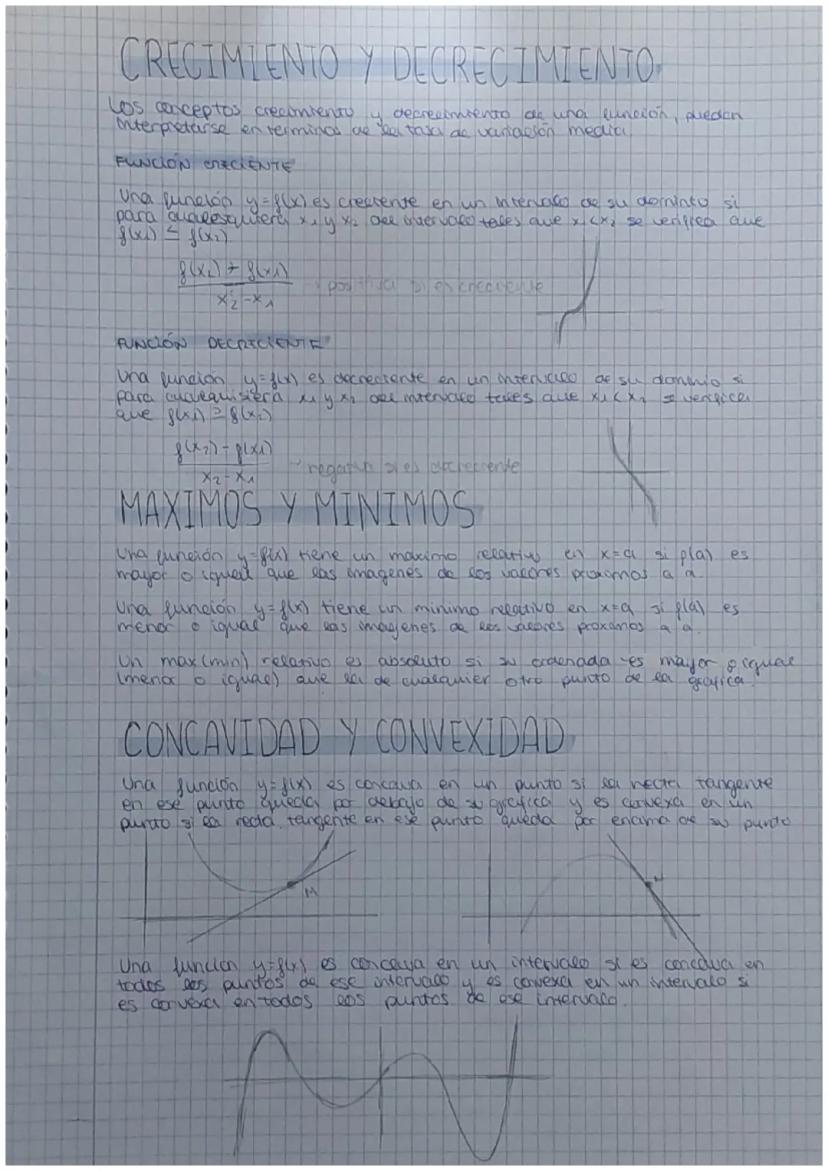 CRECIMIENTO Y DECRECIMIENTO
Los conceptos crecimiento y decrecimiento de una función, pueden
interpretarse en terminos de la tasa de variación media
FUNCIÓN CRECIENTE
Una función y=f(x) es creciente en un intervalo de su dominio si
para cualesquiera x₁ y x₂ del intervalo tales que x₁<x₂ se verifica que
f(x₁) ≤ f(x₂)
f(x₂) - f(x₁)
x₂-x₁
positiva si es creciente
FUNCIÓN DECRECIENTE
Una función y=f(x) es decreciente en un intervalo de su dominio si
para cualequisiera x₁ y x₂ del intervalo tales que x₁<x₂ se verifica
que f(x₁) ≥ f(x₂)
f(x₂) - f(x₁)
x₂-x₁
negativa si es decreciente
MAXIMOS Y MINIMOS
Una función y=f(x) tiene un maximo relativo en x=a si f(a) es
mayor o igual que las imagenes de los valores proximos a a.
Una función y=f(x) tiene un minimo relativo en x=a si f(a) es
menor o igual que las imagenes de los valores proximos a a.
Un max(min) relativo es absoluto si su ordenada es mayor o igual
(menor o igual) que la de cualquier otro punto de la grafica.
CONCAVIDAD Y CONVEXIDAD
Una función y=f(x) es concava en un punto si la recta tangente
en ese punto queda por debajo de su grafica y es convexa en un
punto si la recta tangente en ese punto queda por encima de su punto
M
Una funcion y=f(x) es concava en un intervalo si es concava en
todos los puntos de ese intervalo y es convexa en un intervalo si
es convexa en todos los puntos de ese intervalo.